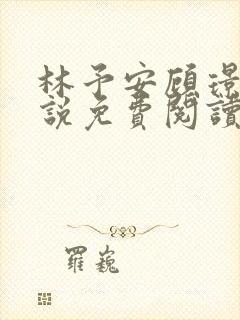 林予安顧璟
說免費閱讀
羅巍